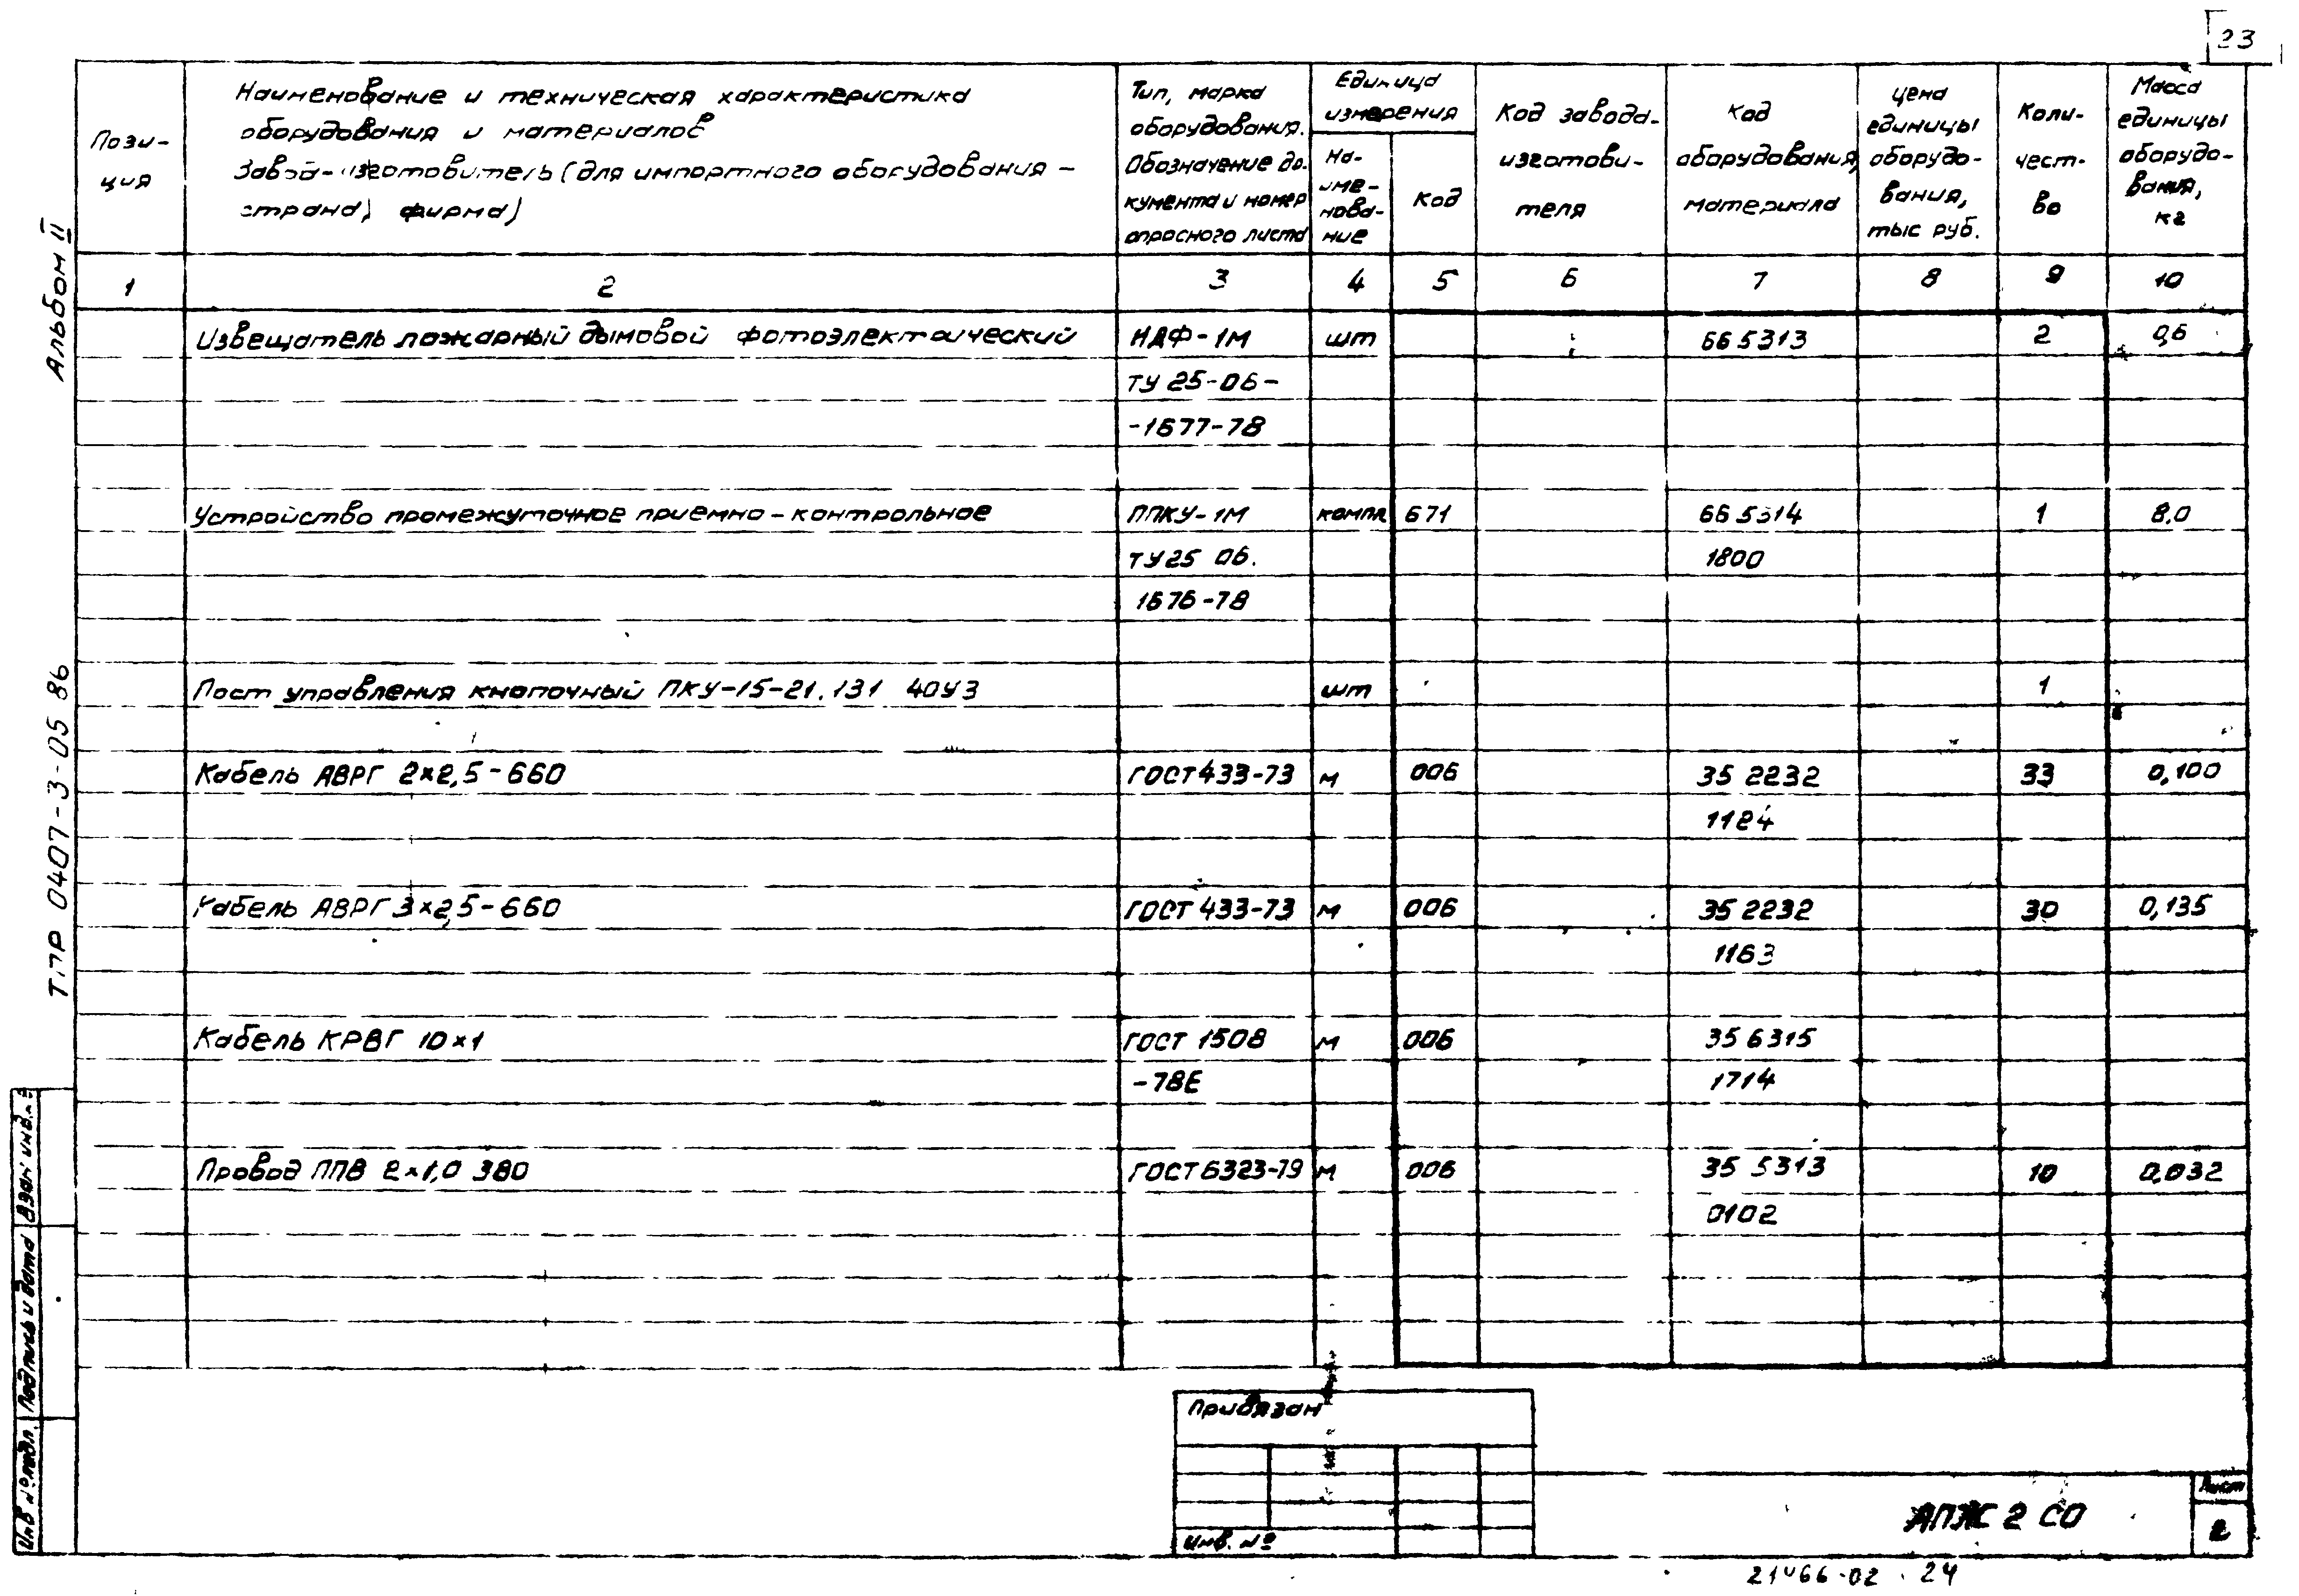 23
Пози-
ция
Наименование и техническая характеристика
оборудования и материалов
Завод-изготовитель (для импортного оборудования -
страна, фирма)
Тип, марка
оборудования.
Обозначение до-
кумента и номер
опросного листа
Единица
измерения
На-
име-
нова-
ние
Код
Код завода-
изготови-
теля
Код
оборудования,
материала
цена
единицы
оборудо-
вания,
тыс руб.
Коли-
чест-
во
Масса
единицы
оборудо-
вания,
кг
1 2 3 4 5 6 7 8 9 10
Извещатель пожарный дымовой фотоэлектрический ИДФ-1М шт 66 5313 2 0,6
ТУ 25-06-
-1677-78
Устройство промежуточное приемно-контрольное ППКУ-1М компл 671 66 5314 1 8,0
ТУ25 06. 1800
1676-78
Пост управления кнопочный ПКУ-15-21.131 40У3 шт 1
Кабель АВРГ 2×2,5-660 ГОСТ 433-73 м 006 35 2232 33 0,100
1124
Кабель АВРГ 3×2,5-660 ГОСТ 433-73 м 006 35 2232 30 0,135
1163
Кабель КРВГ 10×1 ГОСТ 1508 м 006 35 6315
-78Е 1714
Провод ППВ 2×1,0 380 ГОСТ 6323-79 м 006 35 5313 10 0,032
0102
Альбом II
ТПР 0407-3-05 86
Взам инв.
Подпись и дата
Инв № подл.
Привязан
Инв. №
АПЖ 2 СО
Лист
2
21466-02 24